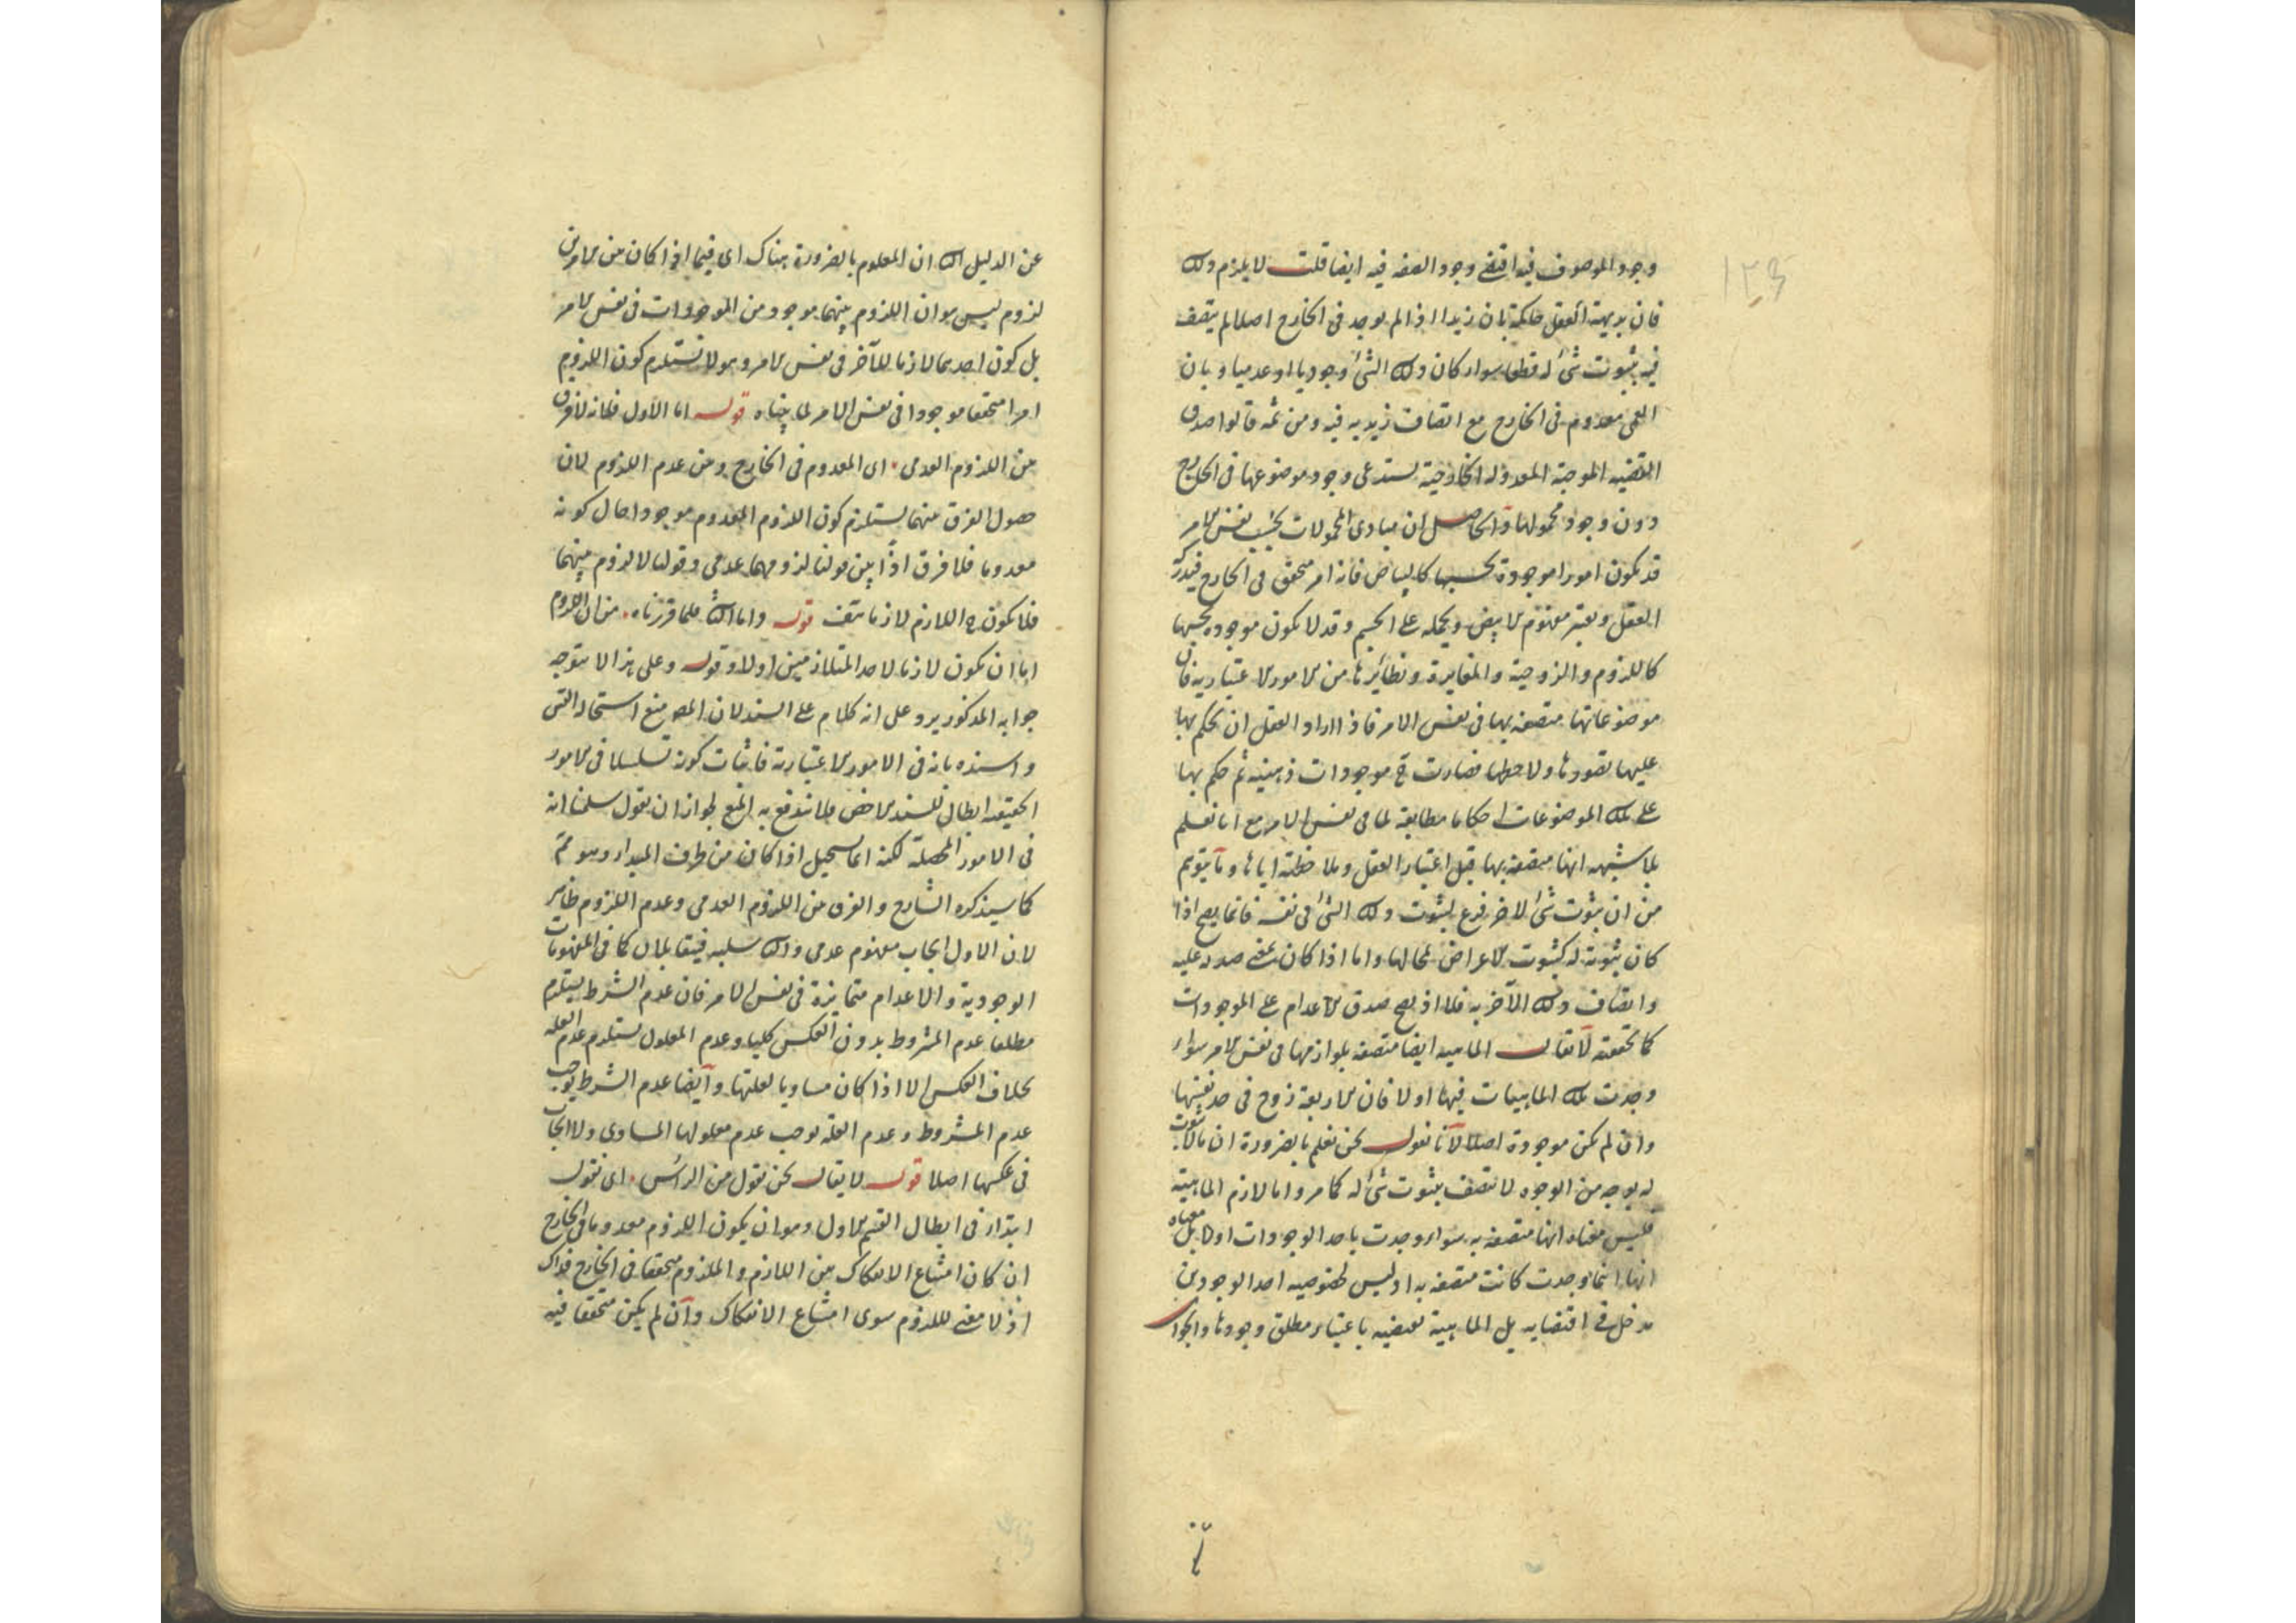 ١٢٥
وجود الموصوف فيه اقتضى وجود الصفه فيه ايضا قلت لا يلزم ذلك
فان بديهة العقل حاكمة بان زيدا اذا لم يوجد فى الخارج اصلا لم يتصف
فيه بثبوت شئ له قطعا سواء كان ذلك الشئ وجوديا او عدميا وبان
العمى معدوم فى الخارج مع اتصاف زيد به فيه ومن ثمه قالوا صدق
القضيه الموجبة المعدوله الخارجية يستدعى وجود موضوعها فى الخارج
دون وجود محمولها والحاصل ان مبادى المحمولات بحسب نفس الامر
قد يكون امورا موجودة بحسبها كالبياض فانه امر متحقق فى الخارج فيدركه
العقل ويعتبر مفهوم الابيض ويحمله على الجسم وقد لا يكون موجوده بحسبها
كاللزوم والزوجية والمغايرة ونظائرها من الامور الاعتباريه فان
موضوعاتها متصفه بها فى نفس الامر فاذا اراد العقل ان يحكم بها
عليها تصورها ولاحظها فصارت ح موجودات ذهنيه ثم حكم بها
على تلك الموضوعات احكاما مطابقة لما فى نفس الامر مع انا نعلم
بلا شبهه انها متصفه بها قبل اعتبار العقل وملاحظته اياها وما يتوهم
من ان ثبوت شئ لاخر فرع لثبوت ذلك الشئ فى نفسه فانما يصح اذا
كان ثبوته له كثبوت الاعراض لمحالها واما اذا كان بمعنى صدقه عليه
واتصاف ذلك الآخر به فلا اذ يصح صدق الاعدام على الموجودات
كما تحققته لا يقال الماهيه ايضا متصفه بلوازمها فى نفس الامر سواء
وجدت تلك الماهيات فيها اولا فان الاربعة زوج فى حد نفسها
وان لم تكن موجودة اصلا لانا نقول نحن نعلم بالضرورة ان ما لا ثبوت
له بوجه من الوجوه لا يتصف بثبوت شئ له كما مر واما لازم الماهية
فليس معناه انها متصفه به سواء وجدت باحد الوجودات اولا بل معناه
انها اينما وجدت كانت متصفه به اذ ليس لخصوصيه احد الوجودين
مدخل فى اقتضايه بل الماهية تقتضيه باعتبار مطلق وجودها والجواب
عن الدليل الثانى ان المعلوم بالضرورة هناك اى فيما اذا كان بين الامرين
لزوم ليس هو ان اللزوم بينهما موجود من الموجودات فى نفس الامر
بل كون احدهما لازما للآخر فى نفس الامر وهو لا يستلزم كون اللزوم
امرا متحققا موجودا فى نفس الامر لما بيناه قوله اما الاول فلانه لا فرق
بين اللزوم العدمى اى المعدوم فى الخارج وبين عدم اللزوم لان
حصول الفرق بينهما يستلزم كون اللزوم المعدوم موجودا حال كونه
معدوما فلا فرق اذًا بين قولنا لزومهما عدمى وقولنا لا لزوم بينهما
فلا يكون ح اللازم لازما هف قوله واما الثانى فلما قررناه من ان اللزوم
اما ان يكون لازما لاحد المتلازمين اولا وقوله وعلى هذا لا يتوجه
جوابه المذكور يرد على انه كلام على السند لان المص منع استحالة التس
واسنده بانه فى الامور الاعتبارية فاثبات كونه تسلسلا فى الامور
الحقيقه ابطال للسند الاخص فلا يندفع به المنع لجواز ان يقول سلمنا انه
فى الامور المحصله لكنه انما يستحيل اذا كان من طرف المبداء وهو مم
كما سيذكره الشارح والفرق بين اللزوم العدمى وعدم اللزوم ظاهر
لان الاول ايجاب مفهوم عدمى والثانى سلبه فيتقابلان كما فى المفهومات
الوجودية والاعدام متمايزة فى نفس الامر فان عدم الشرط يستلزم
مطلقا عدم المشروط بدون العكس كليا وعدم المعلول يستلزم عدم العله
بخلاف العكس الا اذا كان مساويا لعلتها وايضا عدم الشرط يوجب
عدم المشروط وعدم العله يوجب عدم معلولها المساوى ولا ايجاب
فى عكسها اصلا قوله لا يقال نحن نقول من الرأس اى نقول
ابتداء فى ابطال القسم الاول وهو ان يكون اللزوم معدوما فى الخارج
ان كان امتناع الانفكاك بين اللازم والملزوم متحققا فى الخارج فذاك
اذ لا معنى للزوم سوى امتناع الانفكاك وان لم يكن متحققا فيه